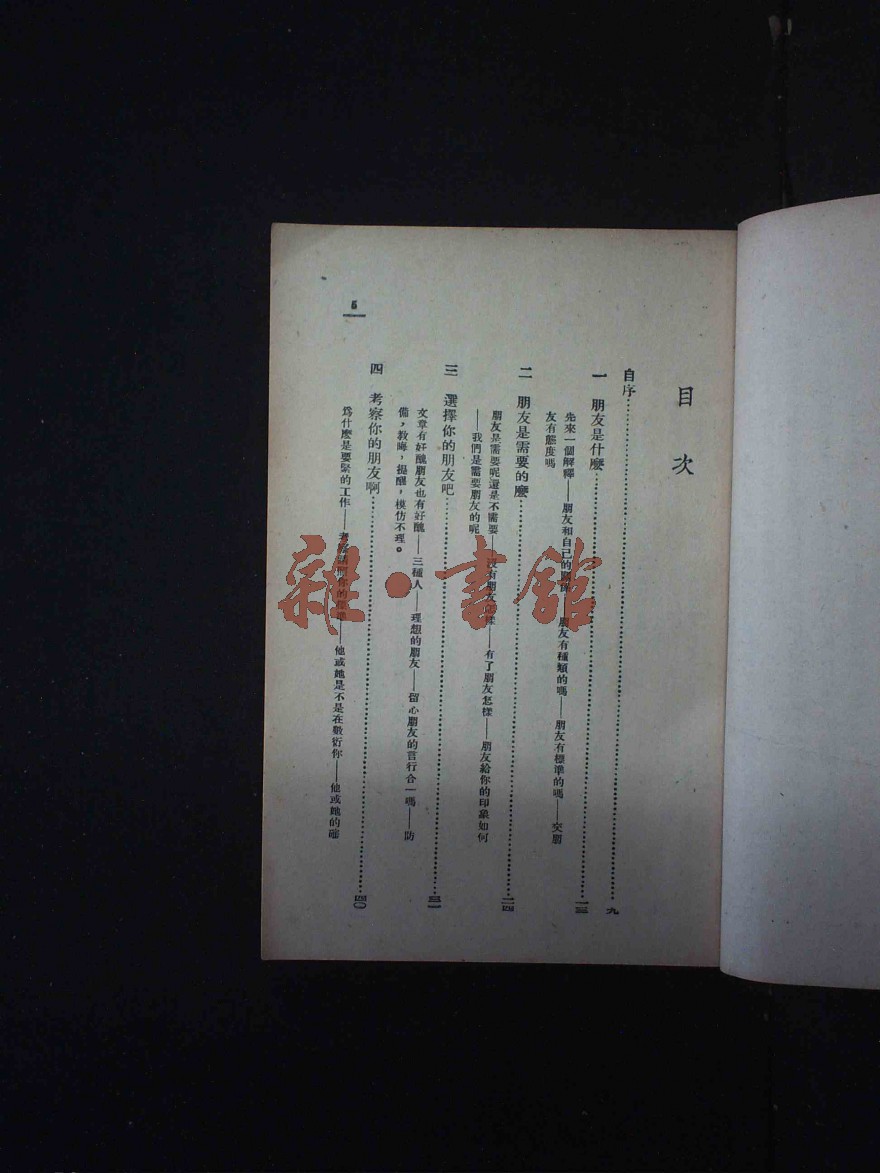 目次
自序……九
一 朋友是什麽……一三
先來一個解釋——朋友和自己的關係——朋友有種類的嗎——朋友有標準的嗎——交朋
友有態度嗎
二 朋友是需要的麽……二四
朋友是需要呢還是不需要——沒有朋友怎樣——有了朋友怎樣——朋友給你的印象如何
——我們是需要朋友的呢
三 選擇你的朋友吧……三一
文章有好醜朋友也有好醜——三種人——理想的朋友——留心朋友的言行合一嗎——防
備,教晦,提醒,模仿不理。
四 考察你的朋友啊……四〇
爲什麽是要緊的工作——你的標準——他或她是不是在敷衍你——他或她的確
5
雜·書館